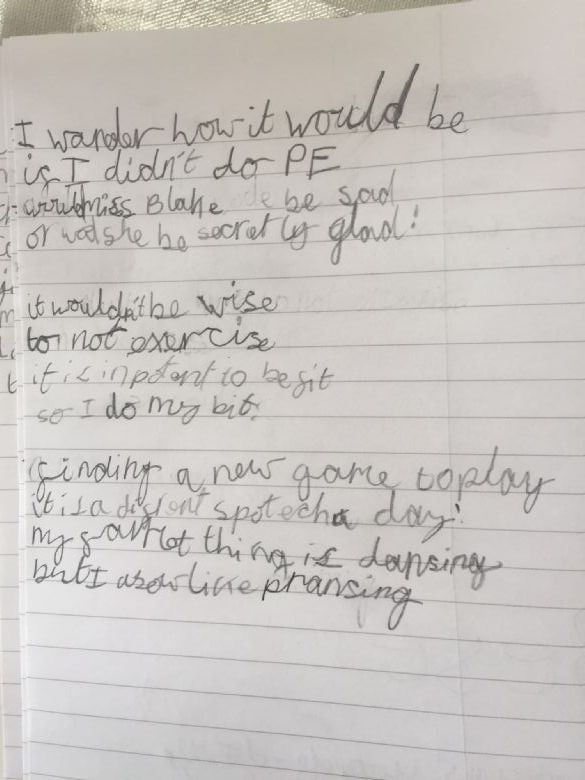 I wander how it would be
is I didn't do PE
would miss Blake be sad
or wod she be secretly glad!
it wouldn't be wise
to not exercise
it is inpotant to be sit
so I do my bit.
finding a new game to play
it is a disrent spot echa day!
my thing is dansing
but I asow like pransing